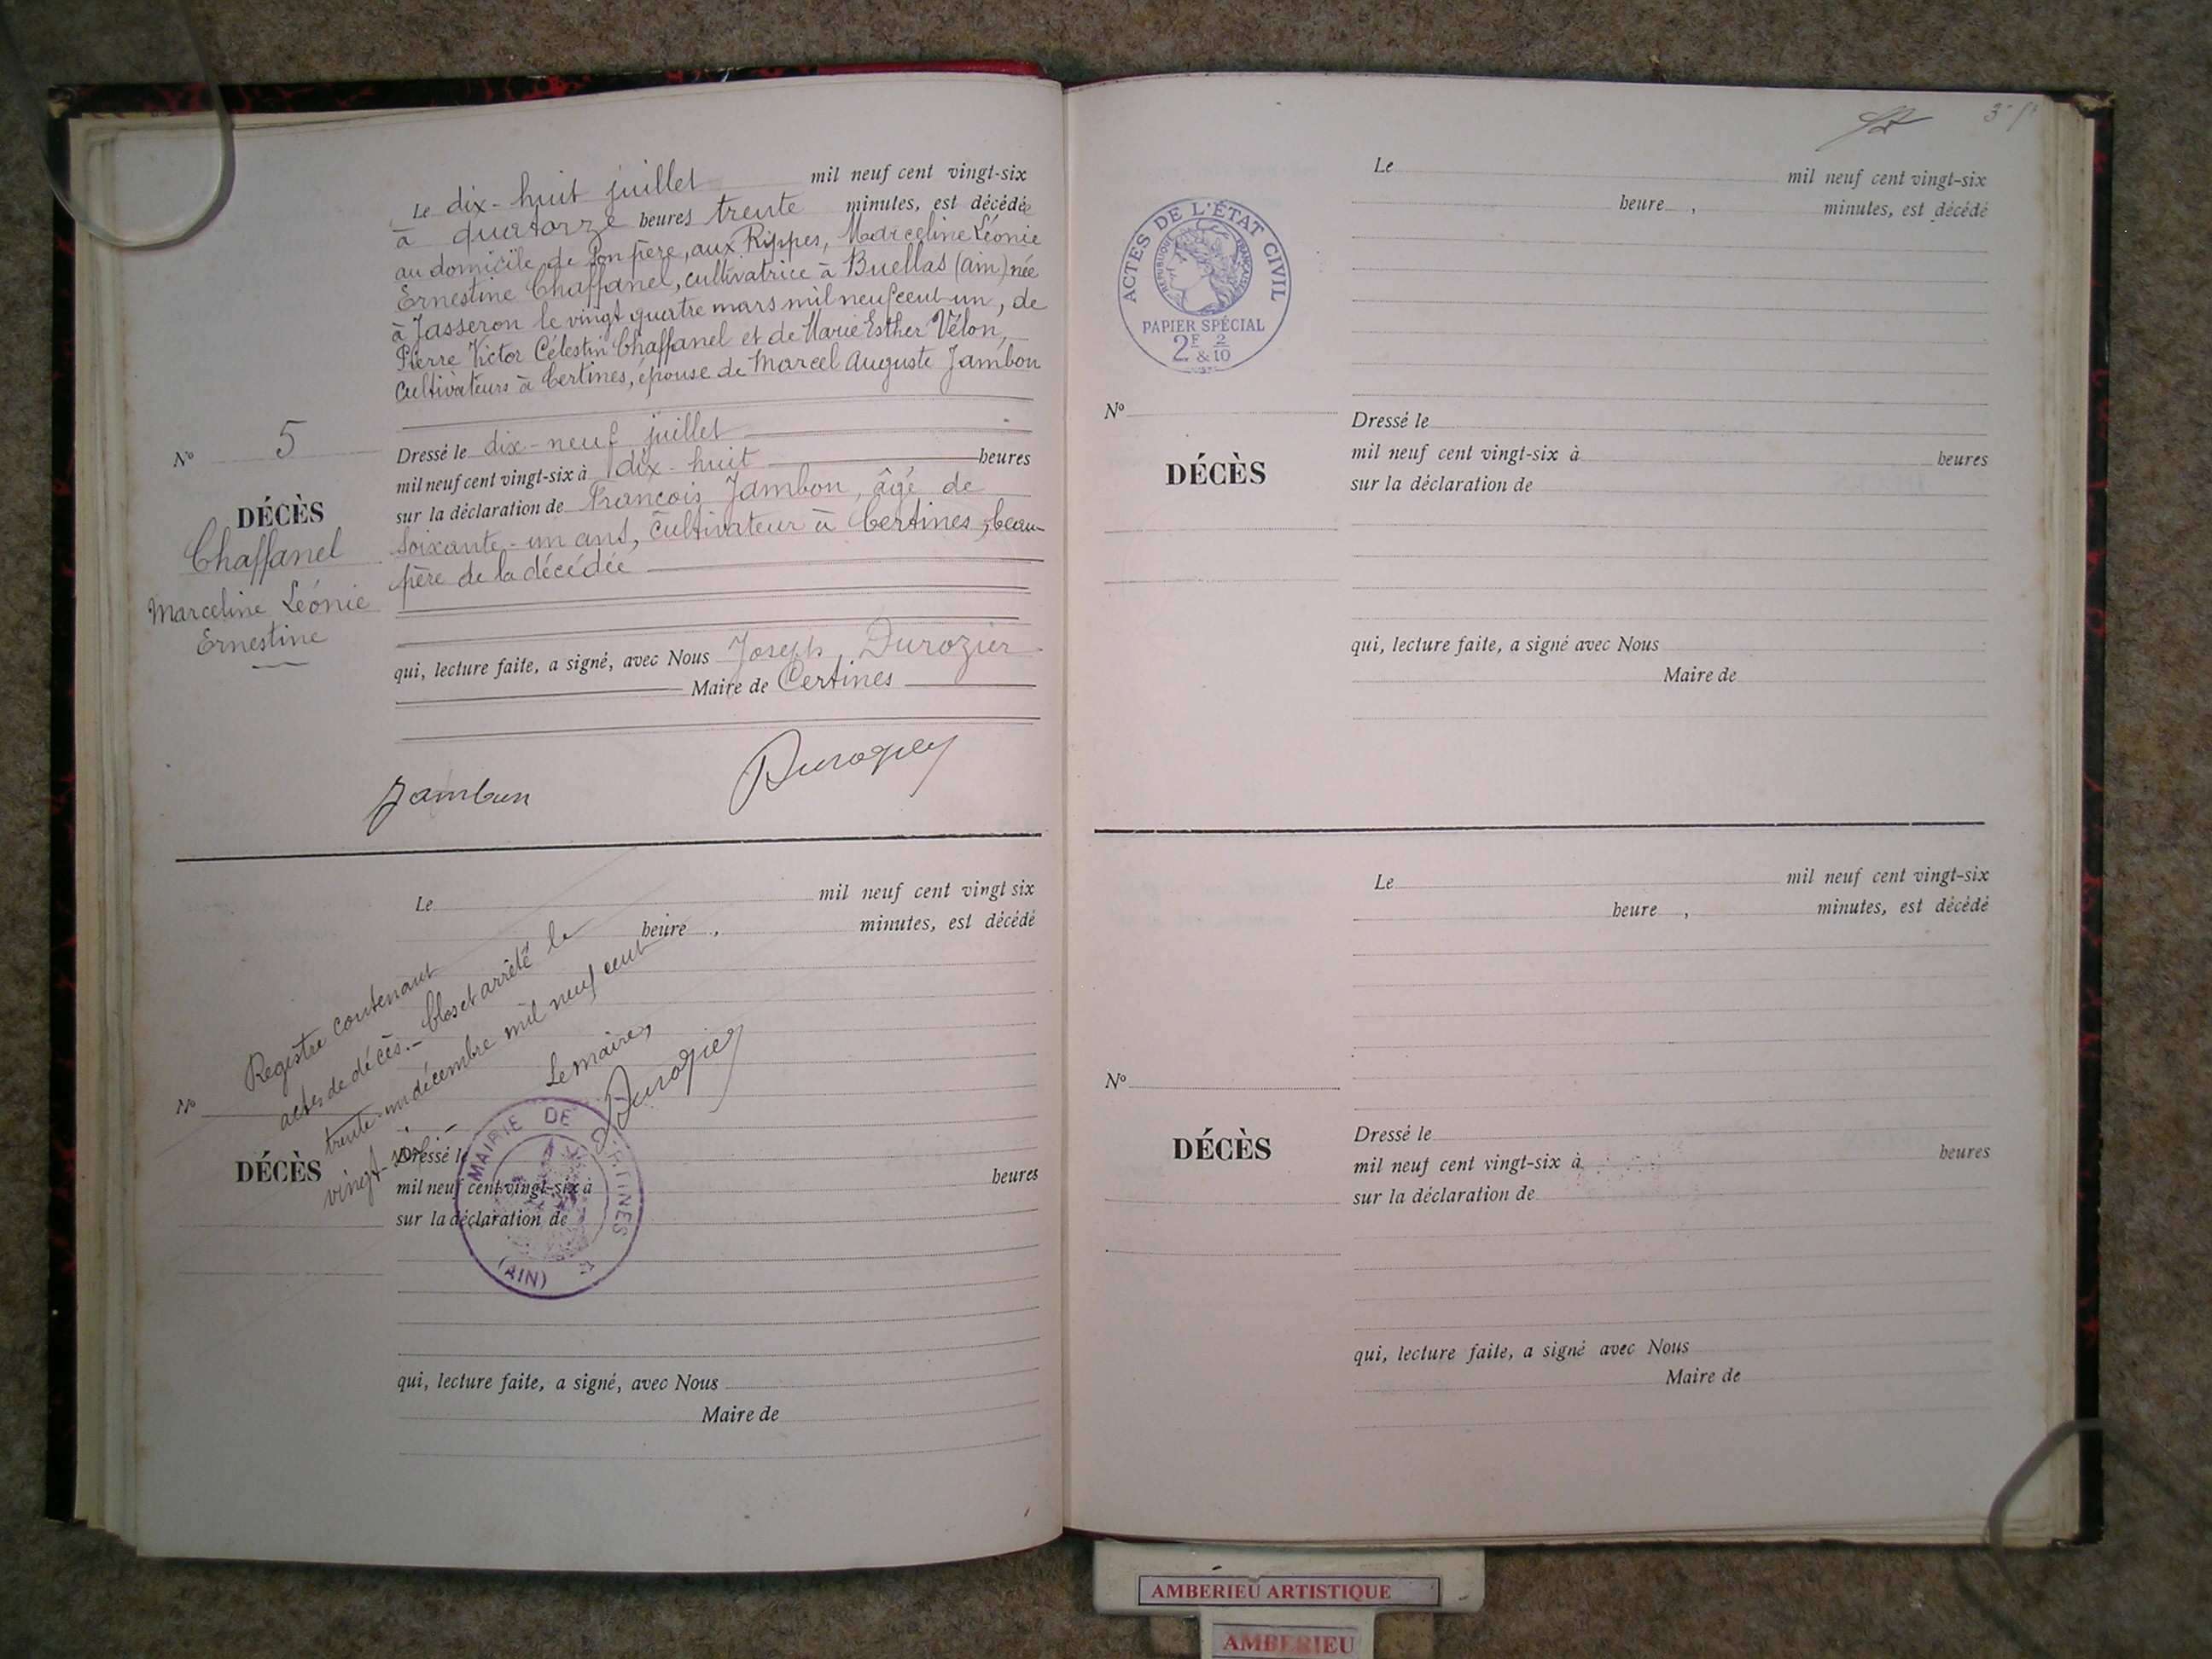 Le dix-huit juillet mil neuf cent vingt-six
à quatorze heures trente minutes, est décédée
au domicile de son père, aux Rippes, Marceline Léonie
Ernestine Chaffanel, cultivatrice à Buellas (ain) née
à Jasseron le vingt quatre mars mil neuf cent un, de
Pierre Victor Célestin Chaffanel et de Marie Esther Vélon,
Cultivateurs à Certines, épouse de Marcel Auguste Jambon
Nº 5
DÉCÈS
Chaffanel
Marceline Léonie
Ernestine
Dressé le dix-neuf juillet
mil neuf cent vingt-six à dix-huit heures
sur la déclaration de François Jambon, âgé de
soixante-un ans, cultivateur à Certines, beau-
père de la décédée
qui, lecture faite, a signé, avec Nous Joseph Durozier
Maire de Certines
Jambon
Durozier
Le mil neuf cent vingt six
heure , minutes, est décédé
Registre contenant
actes de décès.- Clos et arrêté le
trente-un décembre mil neuf cent
vingt-six.-
Le maire,
Durozier
Nº
DÉCÈS
Dressé le
mil neuf cent vingt-six à heures
sur la déclaration de
MAIRIE DE CERTINES
(AIN)
qui, lecture faite, a signé, avec Nous
Maire de
Le mil neuf cent vingt-six
heure , minutes, est décédé
ACTES DE L'ÉTAT CIVIL
RÉPUBLIQUE FRANÇAISE
PAPIER SPÉCIAL
2F 2
& 10
Nº
DÉCÈS
Dressé le
mil neuf cent vingt-six à heures
sur la déclaration de
qui, lecture faite, a signé avec Nous
Maire de
Le mil neuf cent vingt-six
heure , minutes, est décédé
Nº
DÉCÈS
Dressé le
mil neuf cent vingt-six à heures
sur la déclaration de
qui, lecture faite, a signé avec Nous
Maire de
AMBERIEU ARTISTIQUE
AMBERIEU